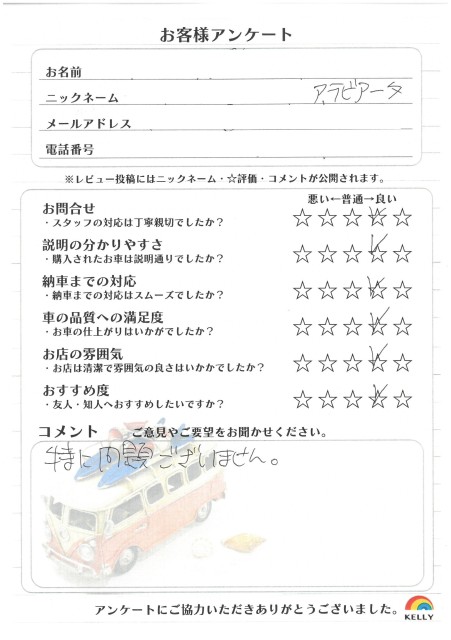 お客様アンケート
お名前
ニックネーム アラビアータ
メールアドレス
電話番号
※レビュー投稿にはニックネーム・☆評価・コメントが公開されます。
悪い←普通→良い
お問合せ
・スタッフの対応は丁寧親切でしたか？ ☆☆☆☆☆
説明の分かりやすさ
・購入されたお車は説明通りでしたか？ ☆☆☆☆☆
納車までの対応
・納車までの対応はスムーズでしたか？ ☆☆☆☆☆
車の品質への満足度
・お車の仕上がりはいかがでしたか？ ☆☆☆☆☆
お店の雰囲気
・お店は清潔で雰囲気の良さはいかかでしたか？ ☆☆☆☆☆
おすすめ度
・友人・知人へおすすめしたいですか？ ☆☆☆☆☆
コメント ご意見やご要望をお聞かせください。
特に問題ございません。
アンケートにご協力いただきありがとうございました。
KELLY